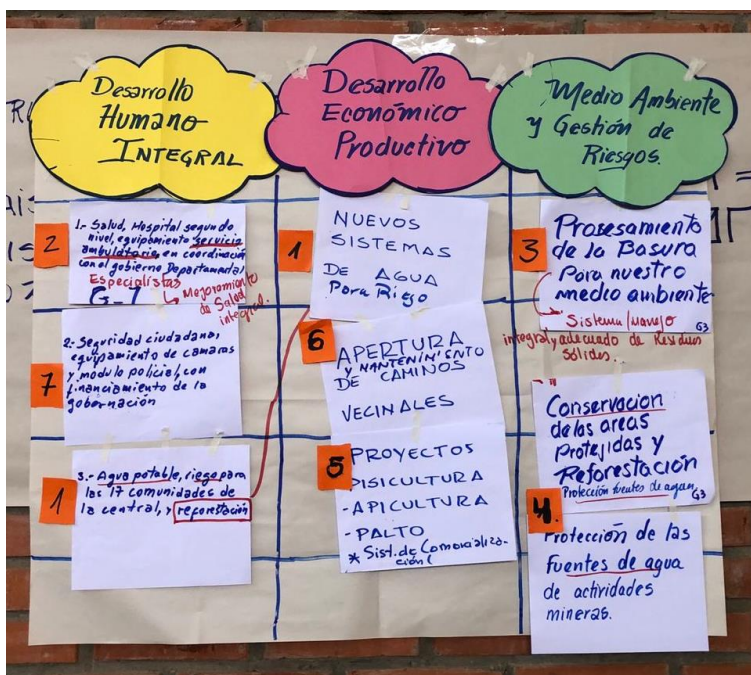 Desarrollo
Humano
INTEGRAL
2
1.- Salud, Hospital segundo
nivel, equipamiento servicio
ambulatorio, en coordinación
con el gobierno Departamental
Especialistas
G-1
Mejoramiento
de Salud
integral.
7
2.- Seguridad ciudadana,
equipamiento de camaras
y modulo policial, con
financiamiento de la
gobernación
1
3.- Agua potable, riego para
las 17 comunidades de
la central, y reporestación
Desarrollo
Económico
Productivo
1
NUEVOS
SISTEMAS
DE AGUA
Para Riego
6
APERTURA
Y MANTENINIENTO
DE CAMINOS
VECINALES
5
PROYECTOS
PISICULTURA
- APICULTURA
- PALTO
* Sist. de Comercializa-
ción
Medio Ambiente
y Gestión de
Riesgos.
3
Prosesamiento
de la Basura
Para nuestro
medio ambiente
Sistema/Manejo
G3
integral y adecuado de Residuos
sólidos.
Conservacion
de las areas
Protejidas y
Reforestación
Protección fuentes de agua
G3
4.
Protección de las
fuentes de agua
de actividades
mineras.